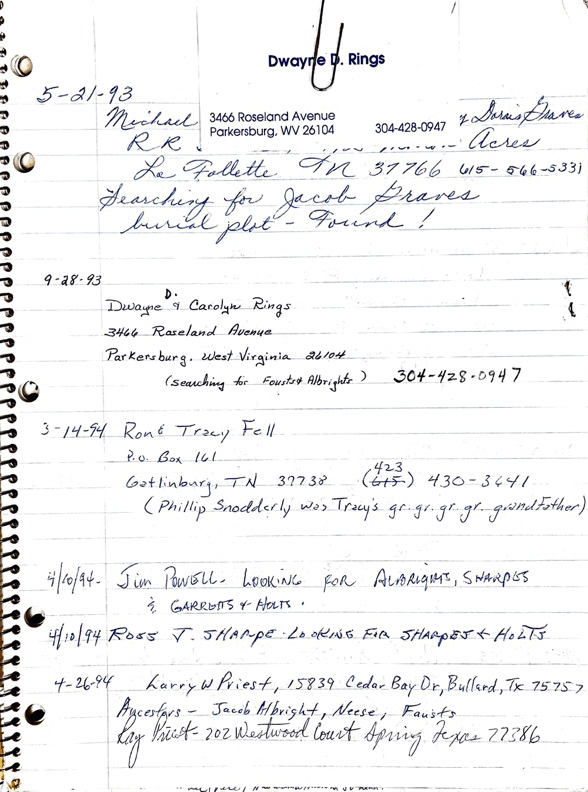 Dwayne D. Rings
5-21-93
Michael
3466 Roseland Avenue
Parkersburg, WV 26104
304-428-0947
y Dorais Graves
R R
Acres
La Follette TN 37766 615-566-5331
Searching for Jacob Graves
burial plot - Found!
9-28-93
Dwayne D. & Carolyn Rings
3466 Roseland Avenue
Parkersburg, West Virginia 26104
(searching for Fousts & Albrights) 304-428-0947
3-14-94 Ron & Tracy Fell
P.O. Box 161
Gatlinburg, TN 37738 (615) 423 430-3641
(Phillip Snodderly was Tracy's gr. gr. gr. gr. grandfather)
4/10/94- Jim Powell- Looking for Albrights, Sharpes
& Garretts & Holts.
4/10/94 Ross J. Sharpe - Looking for Sharpes & Holts
4-26-94 Larry W Priest, 15839 Cedar Bay Dr, Bullard, Tx 75757
Ancestors - Jacob Albright, Neese, Fausts
Ray Priest - 202 Westwood Court Spring Texas 77386